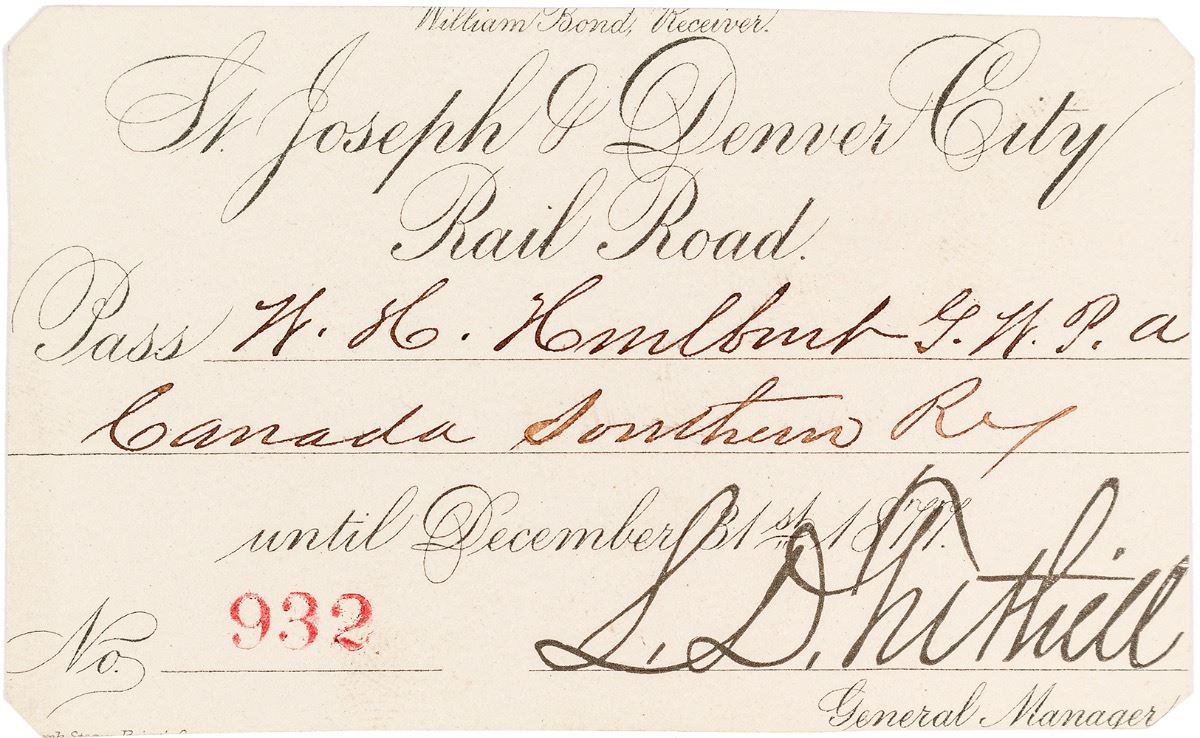 William Bond, Receiver.
St. Joseph & Denver City
Rail Road.
Pass W. H. Hurlburt G. W. P. a
Canada Southern Ry
until December 31st 1877.
No. 932
L. D. Tuthill
General Manager